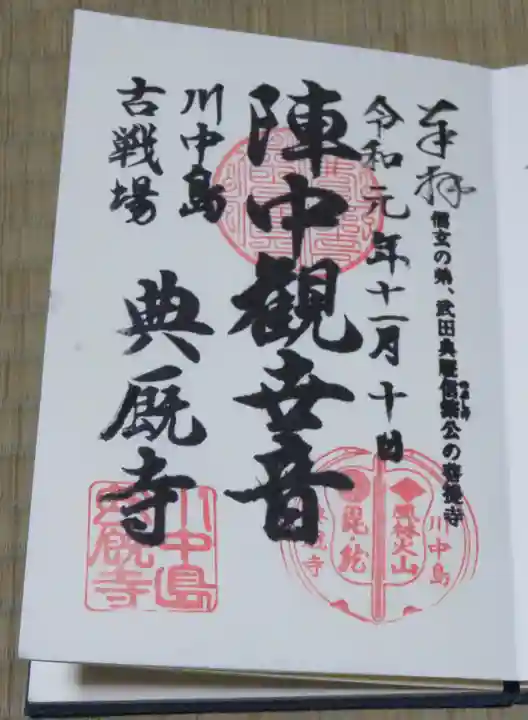 奉拝
信玄の弟、武田典厩信繁公の菩提寺
令和元年十一月十日
陣中観世音
川中島
古戦場
典厩寺
川中島
風林火山
毘・龍
典厩寺
川中島
典厩寺